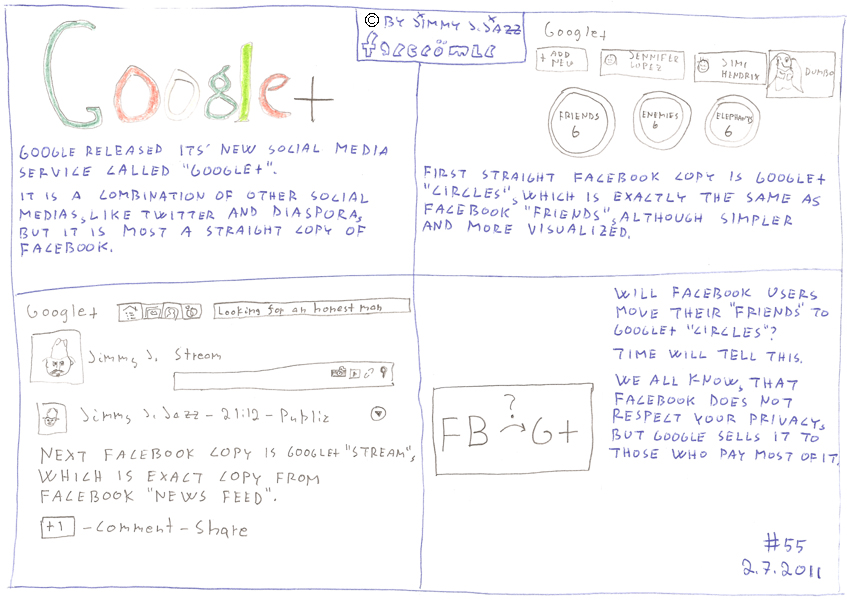 Google+
© BY JIMMY J. JAZZ
GOOGLE RELEASED ITS' NEW SOCIAL MEDIA
SERVICE CALLED "GOOGLE+".
IT IS A COMBINATION OF OTHER SOCIAL
MEDIAS, LIKE TWITTER AND DIASPORA,
BUT IT IS MOST A STRAIGHT COPY OF
FACEBOOK.
Google+
+ ADD
NEW
JENNIFER
LOPEZ
JIMI
HENDRIX
DUMBO
FRIENDS
6
ENEMIES
6
ELEPHANTS
6
FIRST STRAIGHT FACEBOOK COPY IS GOOGLE+
"CIRCLES", WHICH IS EXACTLY THE SAME AS
FACEBOOK "FRIENDS", ALTHOUGH SIMPLER
AND MORE VISUALIZED.
Google+ Looking for an honest man
Jimmy J. Stream
Jimmy J. Jazz - 21:12 - Public
NEXT FACEBOOK COPY IS GOOGLE+ "STREAM",
WHICH IS EXACT COPY FROM
FACEBOOK "NEWS FEED".
+1 - Comment - Share
WILL FACEBOOK USERS
MOVE THEIR "FRIENDS" TO
GOOGLE+ "CIRCLES"?
TIME WILL TELL THIS.
WE ALL KNOW, THAT
FACEBOOK DOES NOT
RESPECT YOUR PRIVACY,
BUT GOOGLE SELLS IT TO
THOSE WHO PAY MOST OF IT.
?
FB → G+
#55
2.7.2011